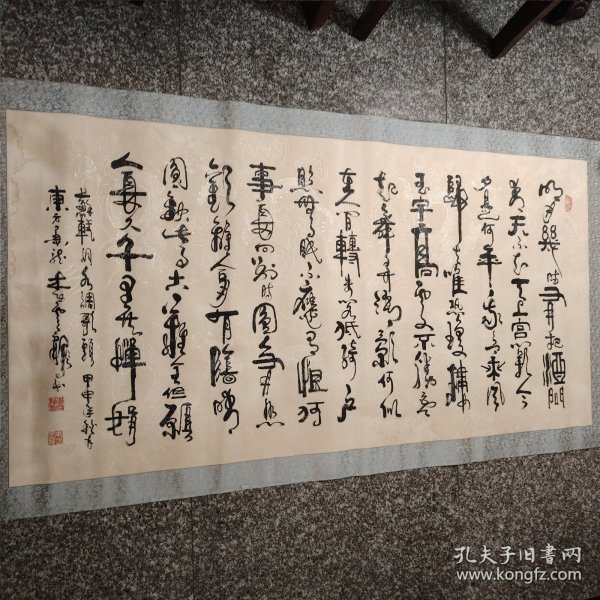 明月幾時有把酒問
青天不知天上宮闕今
夕是何年我欲乘風
歸去唯恐瓊樓
玉宇高處不勝寒
起舞弄清影何似
在人間轉朱閣低綺戶
照無眠不應有恨何
事長向別時圓人有悲
歡離合月有陰晴
圓缺此事古難全但願
人長久千里共嬋娟
蘇軾詞水調歌頭 甲申年秋月
孔夫子旧书网
www.kongfz.com